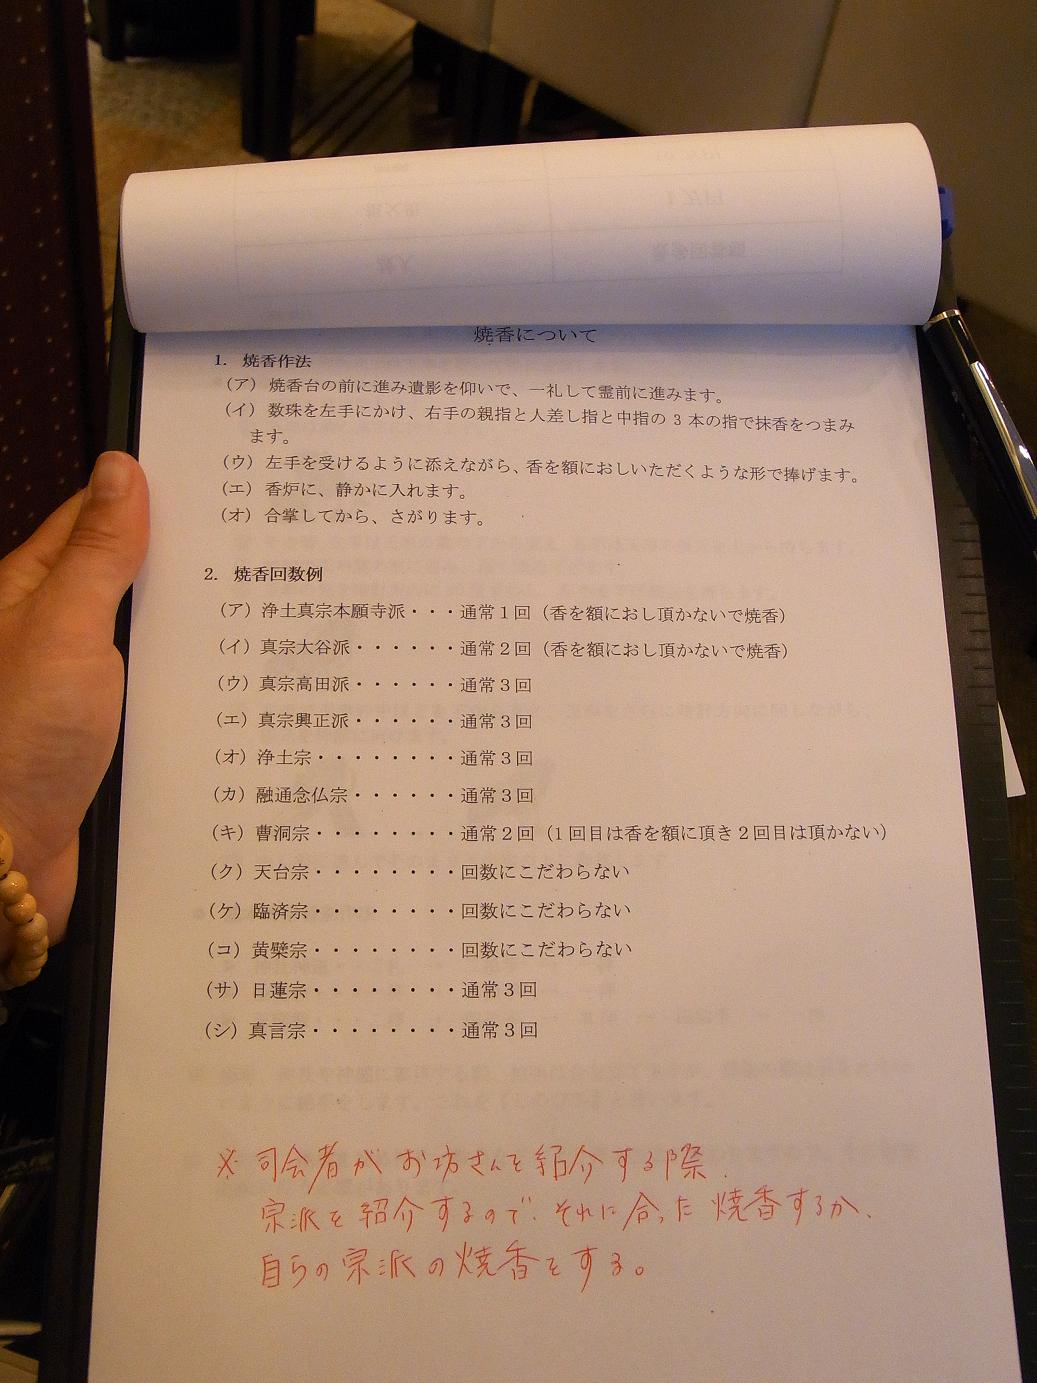 焼香について
1. 焼香作法
(ア) 焼香台の前に進み遺影を仰いで、一礼して霊前に進みます。
(イ) 数珠を左手にかけ、右手の親指と人差し指と中指の 3 本の指で抹香をつまみ
ます。
(ウ) 左手を受けるように添えながら、香を額におしいただくような形で捧げます。
(エ) 香炉に、静かに入れます。
(オ) 合掌してから、さがります。
2. 焼香回数例
(ア) 浄土真宗本願寺派・・・通常１回（香を額におし頂かないで焼香）
(イ) 真宗大谷派・・・・・・通常２回（香を額におし頂かないで焼香）
(ウ) 真宗高田派・・・・・・通常３回
(エ) 真宗興正派・・・・・・通常３回
(オ) 浄土宗・・・・・・・・通常３回
(カ) 融通念仏宗・・・・・・通常３回
(キ) 曹洞宗・・・・・・・・通常２回（１回目は香を額に頂き２回目は頂かない）
(ク) 天台宗・・・・・・・・回数にこだわらない
(ケ) 臨済宗・・・・・・・・回数にこだわらない
(コ) 黄檗宗・・・・・・・・回数にこだわらない
(サ) 日蓮宗・・・・・・・・通常３回
(シ) 真言宗・・・・・・・・通常３回
※ 司会者がお坊さんを紹介する際、
宗派を紹介するので、それに合った焼香するか、
自らの宗派の焼香をする。